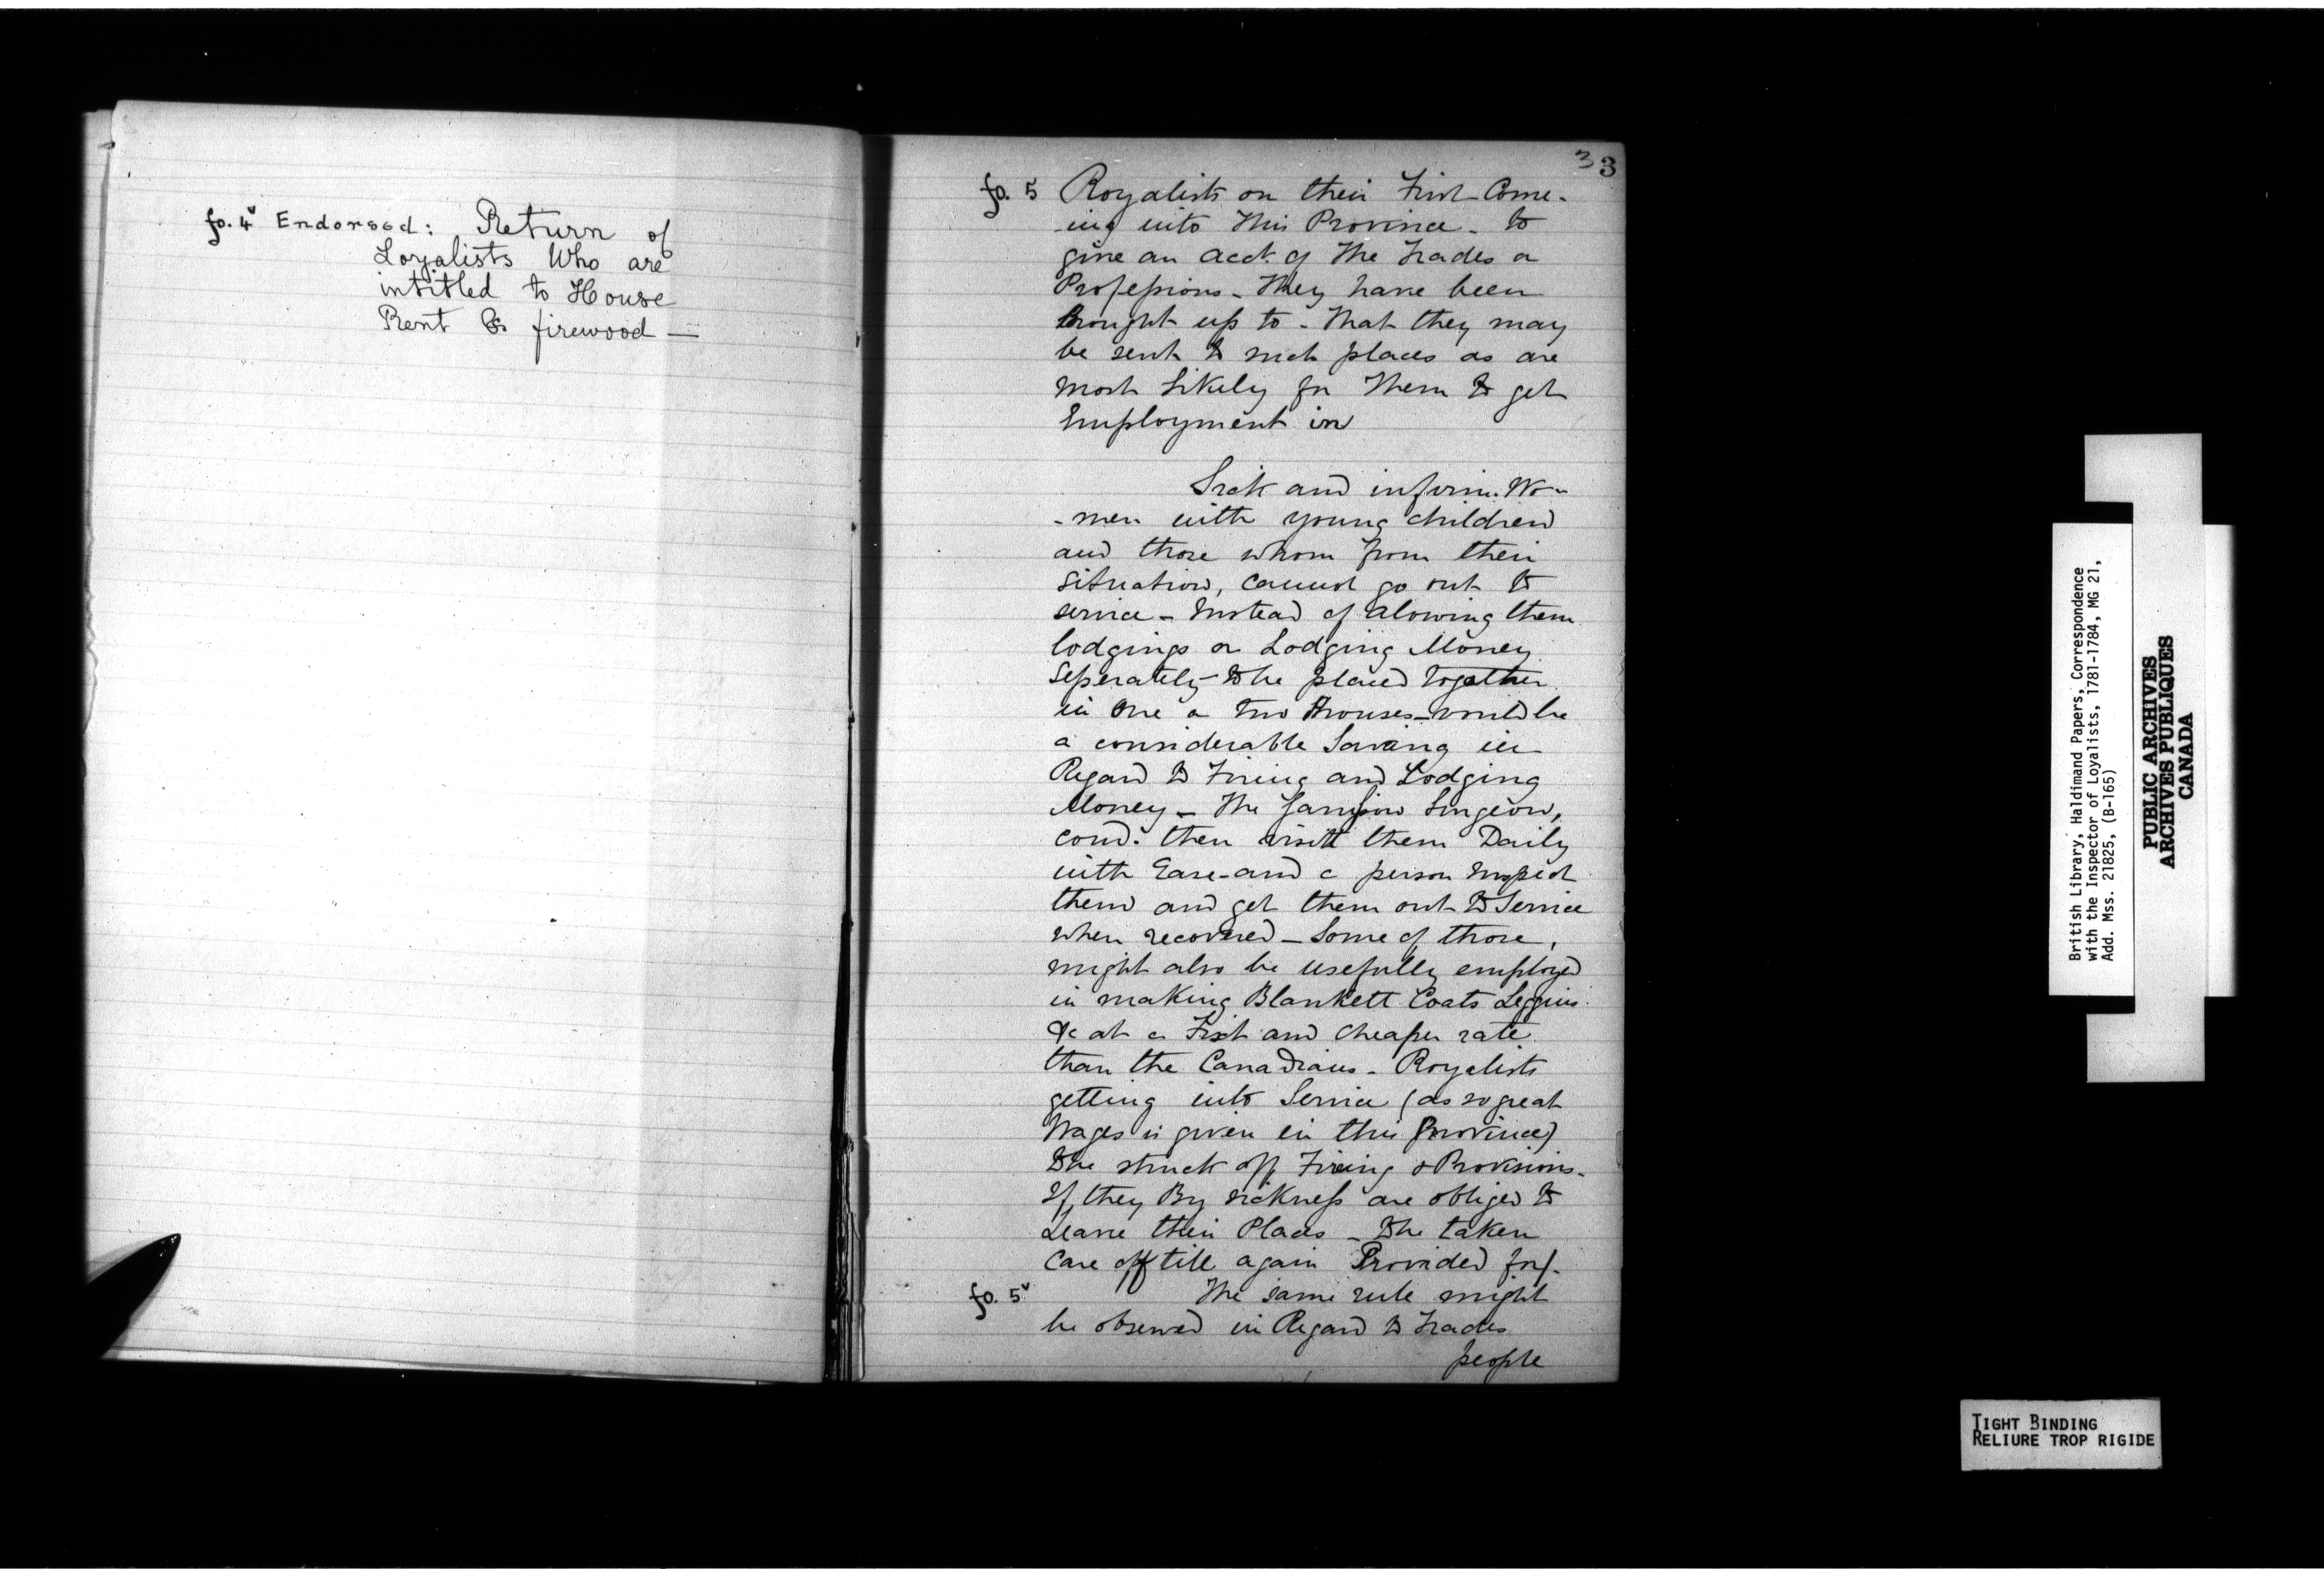 fo. 4v Endorsed: Return of
Loyalists Who are
intitled to House
Rent & firewood —
3 3
fo. 5 Royalists on their First Come-
-ing into This Province - to
give an acct. of The Trades or
Professions - They have been
Brought up to - That they may
be sent to such places as are
most Likely for Them to get
Employment in
Sick and infirm. Wo-
-men with young children
and those whom from their
situation, cannot go out to
service - Instead of alowing them
lodgings or Lodging Money
Seperately to be placed together
in One or two Houses - would be
a considerable Saving in
Regard to Firing and Lodging
Money - The Garrison Surgeon,
coud. then visitt them Daily
with Ease - and a person Inspect
them and get them out to Service
when recovered - Some of those,
might also be usefully employed
in making Blankett Coats Leggins
&c at a Fixt and Cheaper rate
than the Canadians - Royalists
getting into Service (as so great
Wages is given in this Province)
to be struck off Fireing & Provisions -
If they By sickness are obliged to
Leave their Places - to be taken
Care off till again Provided for/.
fo. 5v The same rule might
be observed in Regard to Trades
people
British Library, Haldimand Papers, Correspondence
with the Inspector of Loyalists, 1781-1784, MG 21,
Add. Mss. 21825, (B-165)
PUBLIC ARCHIVES
ARCHIVES PUBLIQUES
CANADA
TIGHT BINDING
RELIURE TROP RIGIDE